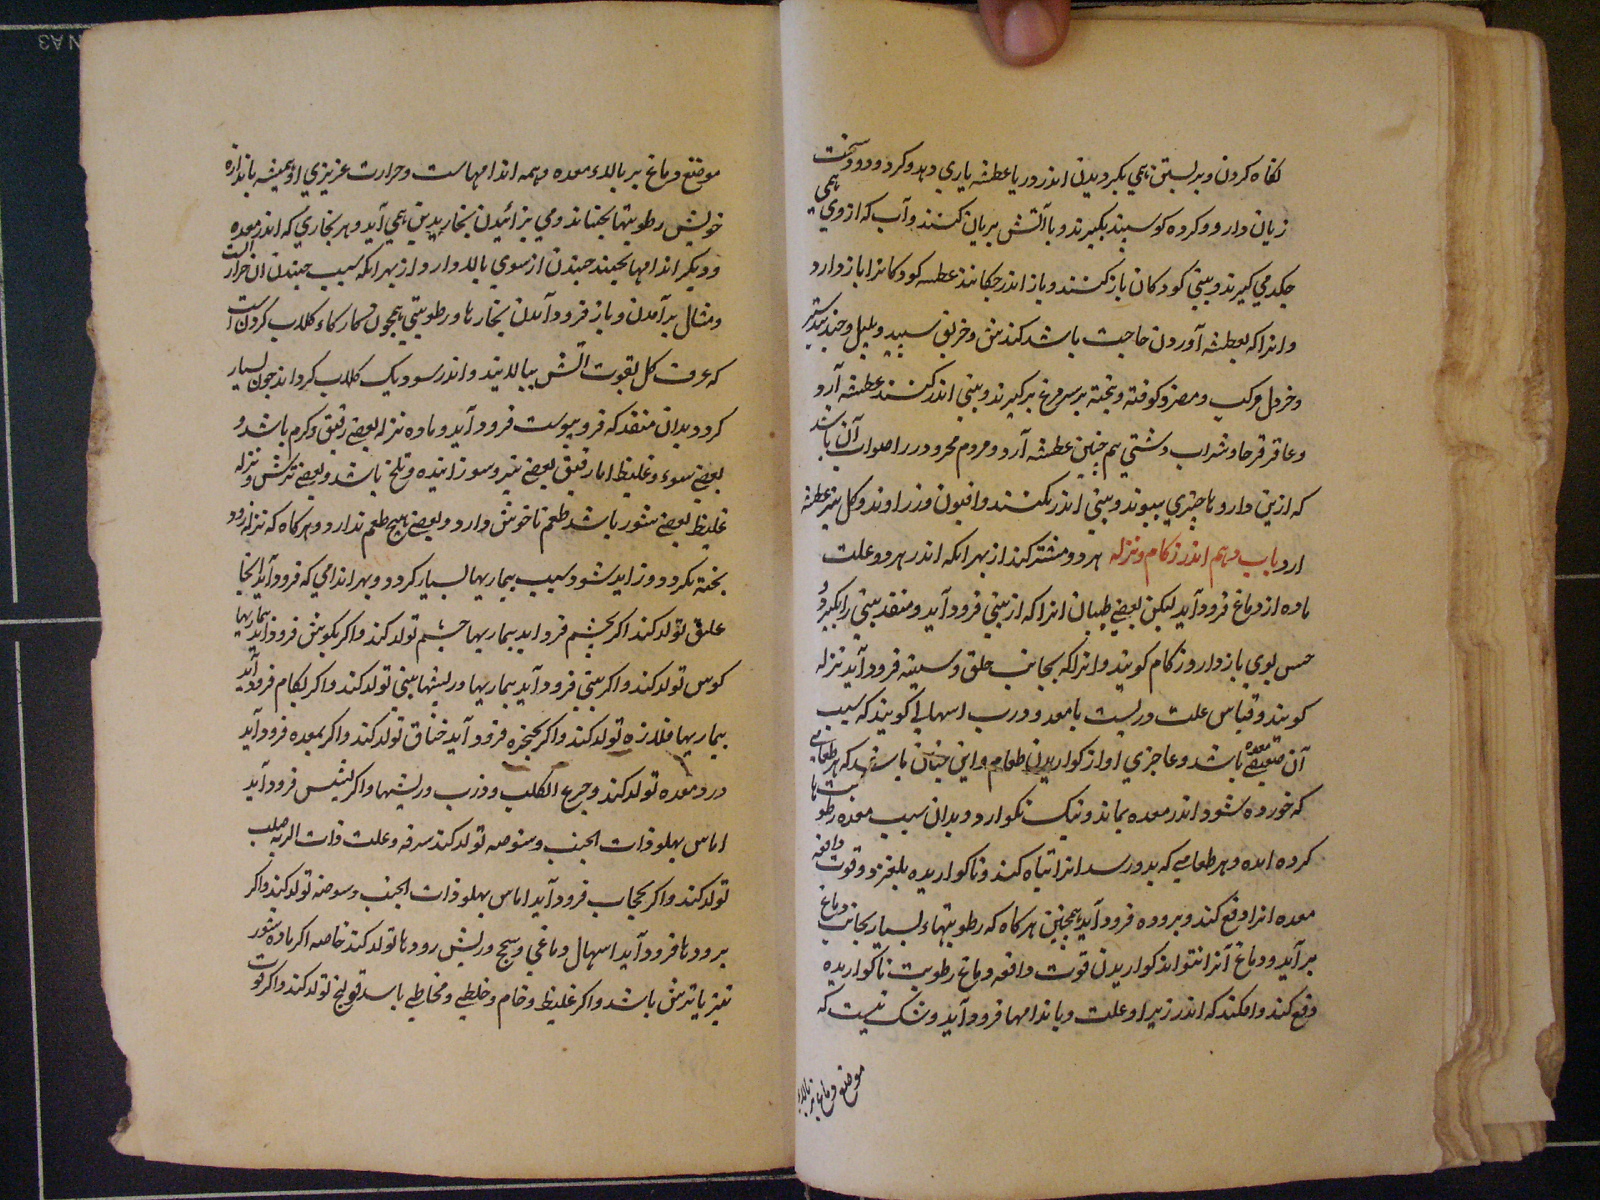 نکاه کردن و بر بستن همی بکردیدن اندر دریا عطسه یاری دهد و کرد و دود سخت
زیان دارد و کرده کوسپند بکیرند و با آتش بریان کنند و آب که از وی همی
چکد می کیرند و بینی کودکان باز کنند و باز اندر چکانند عطسه کودکانرا باز دارد
و انرا که بعطسه آوردن حاجت باشد کندش و خربق سپید و پلپل و جندبیدستر
و خردل مرکب و مفرد کوفته و بیخته بر سر مرغ برکیرند و بینی اندر کنند عطسه آرد
و عاقرقرحا و شراب دشتی هم چنین عطسه آرد و مردم محرور را صواب آن باشد
که ازین دارو با چیزی ببویند و بینی اندر نکنند و افیون و زراوند و کل نیز عطسه
ارد باب دهم اندر زکام و نزله هر دو مشترکند از بهر انکه اندر هر دو علت
ماده از دماغ فرود آید لیکن بعضی طبیبان انرا که از بینی فرود آید و منفذ بینی را بکیرد و
حس بوی باز دارد زکام کویند و انرا که بجانب حلق و سینه فرود آید نزله
کویند و قیاس علت درست با معده و درب اسهالی کویند که سبب
آن ضعیفی معده باشد و عاجزی او از کواریدن طعام و این چنان باشد که هر طعامی
که خورده شود اندر معده بماند و نیک نکوارد و بدان سبب معده رطوبت ها
کرده ایده و هر طعامی که بدو رسد انرا تباه کند و ناکواریده بلغزد و قوت دافعه
معده انرا دفع کند و بروده فرود آید همچنین هر کاه که رطوبتهاء بسیار بجانب دماغ
بر آید و دماغ آنرا نتواند کواریدن قوت دافعه دماغ رطوبت ناکواریده
دفع کند و افکند که اندر زیر او علت و باندامها فرود آید و شک نیست که
موضع دماغ بر بالاء
موضع دماغ بر بالاء معده و همه اندامهاست و حرارت غریزی او همیشه باندازه
خویش رطوبتها بجنباند و می بزائیدن بخار بدین همی آید و هر بخاری که اندر معده
و دیکر اندامها بجنبد جنبدن از سوی بالا دارد از بهر انکه سبب جنبدن ان حرارتست
و مثال بر آمدن و باز فرود آمدن بخارها و رطوبتی همچون کار کاء کلاب کردن است
که عرق کل بقوت اتش ببالا نیند و اندر سو دیک کلاب کرد اند چون بسیار
کرد و بدان منفذ که فرو پیوست فرود آید و ماده نزله بعضی رقیق و کرم باشد و
بعضی سوء و غلیظ اما رقیق بعضی تیز و سوزاینده و تلخ باشد و بعضی ترش و نزله
غلیظ بعضی شور باشد طعم ناخوش دارد و بعضی هیچ طعم ندارد و هر کاه که نزله زود
پخته نکردد و زاید شود سبب بیماریها بسیار کردد و بهر اندامی که فرود آید انجا
علتی تولد کند اکر بچشم فرود اید بیماریها چشم تولد کند و اکر بکوش فرود آید بیماریها
کوش تولد کند و اکر ببینی فرود آید بیماریها و ریشها بینی تولد کند و اکر بکام فرود آید
بیماریها ملازه تولد کند و اکر بحنجره فرود آید خناق تولد کند و اکر بمعده فرود آید
درد معده تولد کند و جوع الکلب و ذرب و ریشها و اکر بشش فرود آید
اماس پهلو و ذات الجنب و شوصه تولد کند سرفه و علت ذات الریه و صلب
تولد کند و اکر بحجاب فرود آید اماس پهلو و ذات الجنب و شوصه تولد کند و اکر
برودها فرود آید اسهال دماغی و سحج و ریش رودها تولد کند خاصه اکر ماده شور
تیز یا ترش باشد و اکر غلیظ و خام و خلطی و مخاطی باشد قولنج تولد کند و اکر